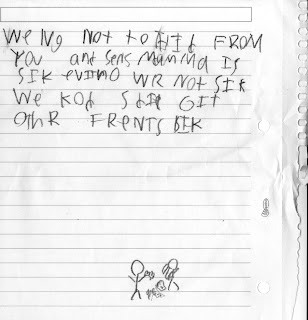 We NO Not to HID FROM
YOU and sens Mamma Is
SIK evin O WR NOT SIK
We KOD Stil GIT
OthR FRENTS SIK